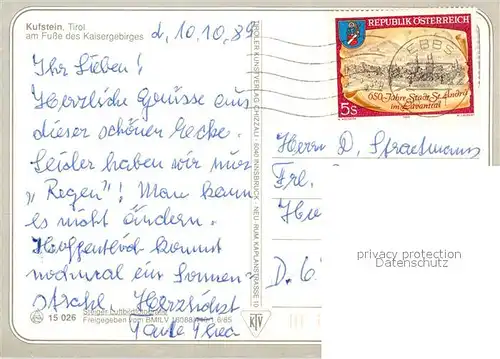 Kufstein, Tirol
am Fuße des Kaisergebirges
d. 10.10.89
Ihr Lieben!
Herzliche Grüsse aus
dieser schönen Ecke.
Leider haben wir nur
"Regen"! Man kann
es nicht ändern.
Hoffentlich kommt
nochmal ein Sonnen-
strahl. Herzlichst
Tante Thea
15 026
Freigegeben vom BMfLV
TIROLER KUNSTVERLAG CHIZZALI · 6040 INNSBRUCK - NEU RUM KAPLANSTRASSE 10
KTV
REPUBLIK ÖSTERREICH
EBBS
650 Jahre Stadt St. Andrä
im Lavanttal
5s
Herrn D. Stratmann
Frl.
D.
privacy protection
Datenschutz